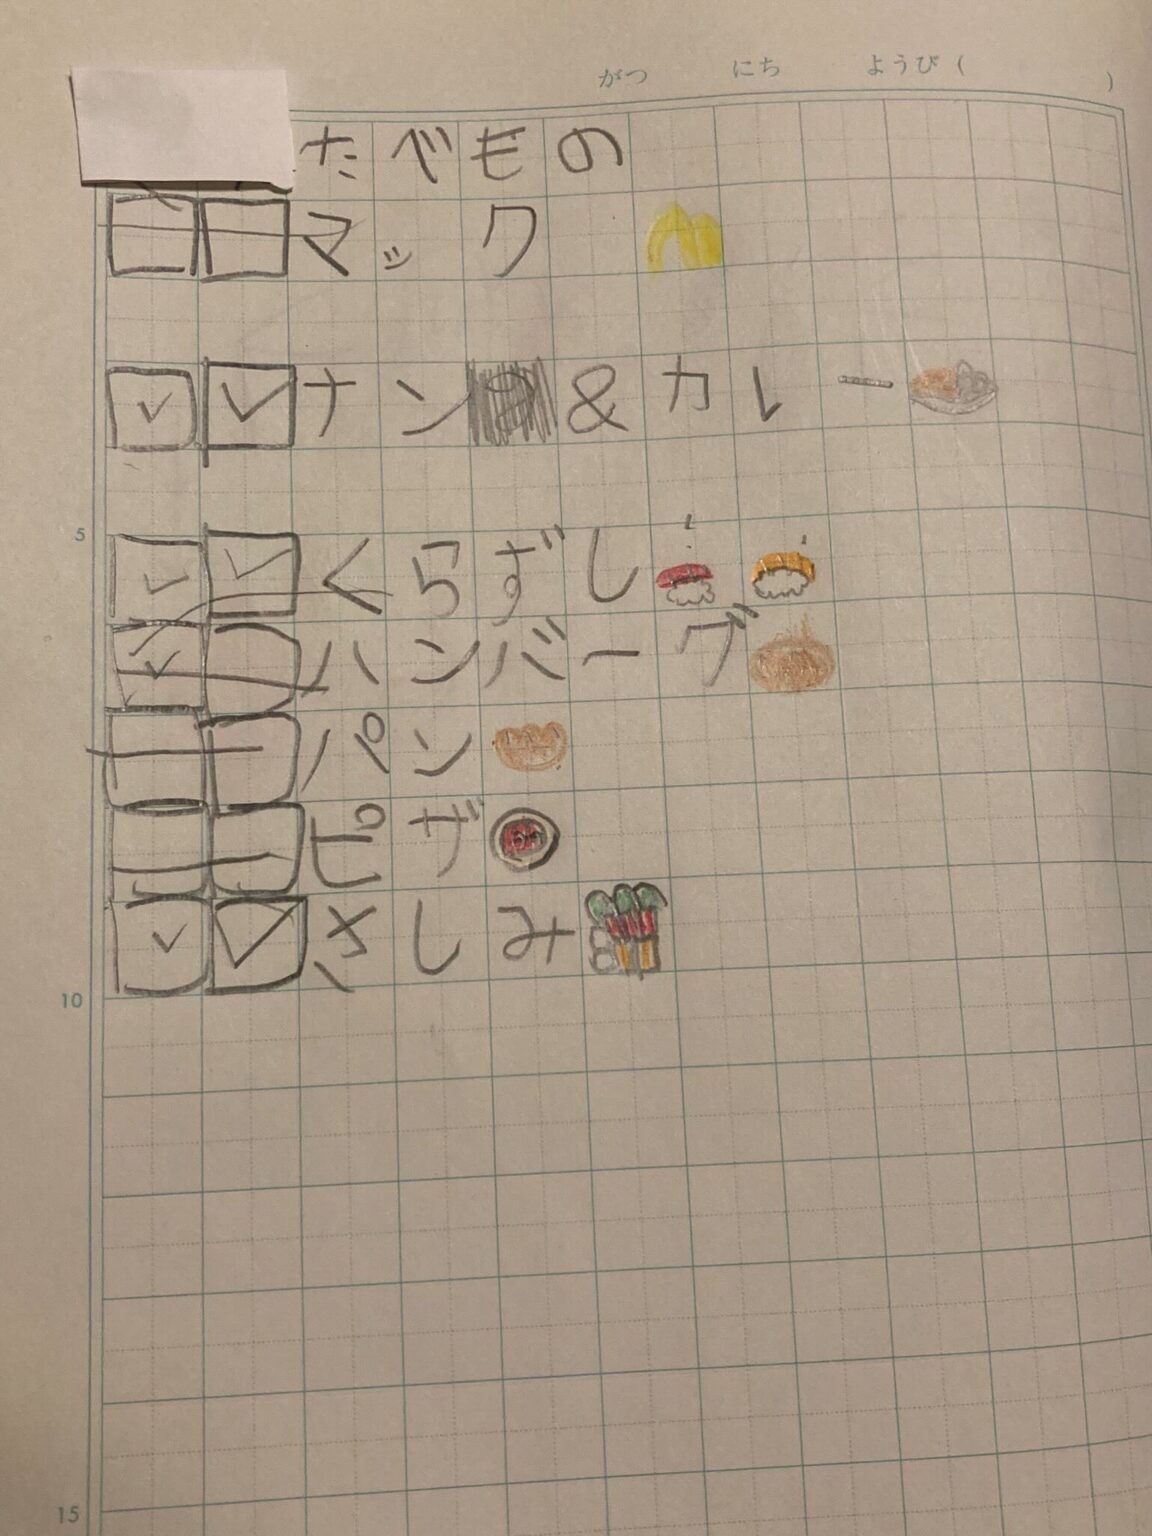 がつ にち ようび ( )
たべもの
マック
ナン&カレー
5
くらずし
ハンバーグ
パン
ピザ
さしみ
10
15